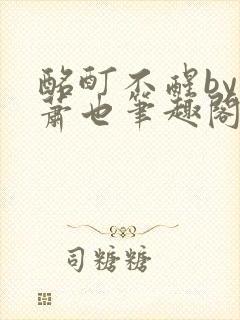 酩酊不醒by
萧也笔趣阁
司糖糖